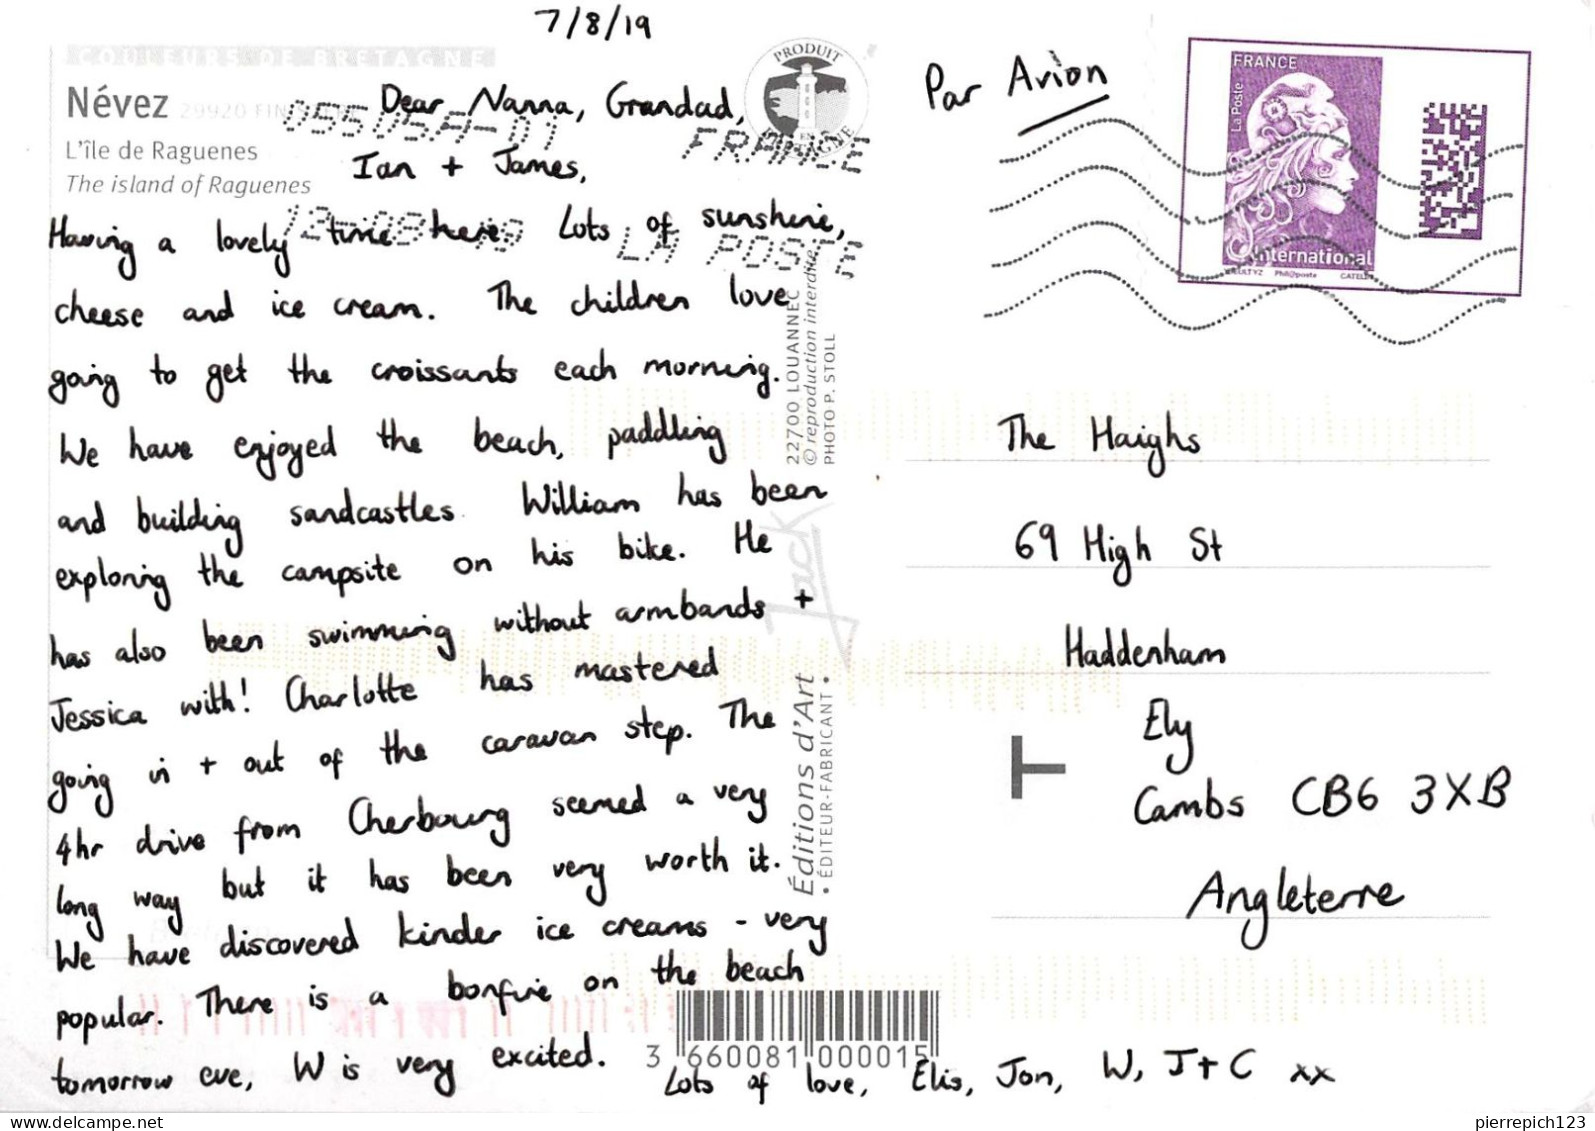 7/8/19
COULEURS DE BRETAGNE
Névez 29920 FINISTÈRE
L'île de Raguenes
The island of Raguenes
Dear Nanna, Grandad,
Ian + James,
Having a lovely time here. Lots of sunshine,
cheese and ice cream. The children love
going to get the croissants each morning.
We have enjoyed the beach, paddling
and building sandcastles. William has been
exploring the campsite on his bike. He
has also been swimming without armbands +
Jessica with! Charlotte has mastered
going in + out of the caravan step. The
4hr drive from Cherbourg seemed a very
long way but it has been very worth it.
We have discovered kinder ice creams - very
popular. There is a bonfire on the beach
tomorrow eve, W is very excited.
Lots of love, Elis, Jon, W, J + C xx
PRODUIT
EN
BRETAGNE
05505A-01
FRANCE
12-08-19
LA POSTE
22700 LOUANNEC
© reproduction interdite
PHOTO P. STOLL
Jack
Éditions d'Art
• ÉDITEUR-FABRICANT •
3 660081 000015
Par Avion
FRANCE
La Poste
International
Phil@poste
The Haighs
69 High St
Haddenham
Ely
Cambs CB6 3XB
Angleterre
T
delcampe.net
pierrepich123